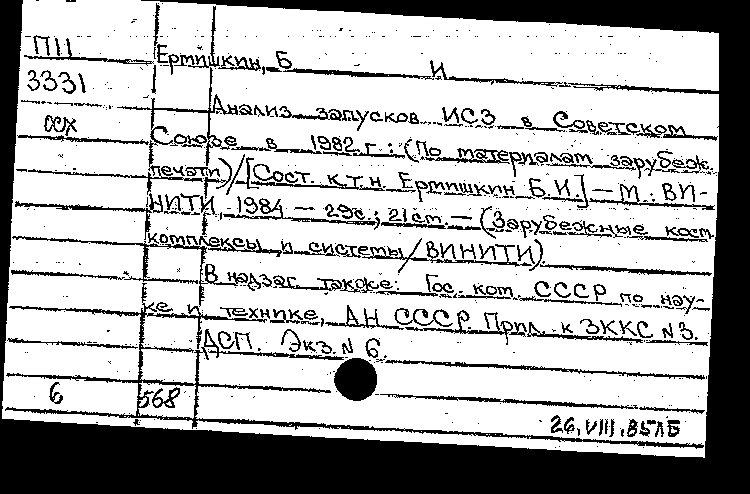 П11 Ермишкин, Б И.
3331 Анализ запусков ИСЗ в Советском
осх Союзе в 1982 г.: (По материалам зарубеж.
печати)/[Сост. к.т.н. Ермишкин Б.И.] — М.: ВИ-
НИТИ, 1984 — 29с.; 21см. — (Зарубежные косм.
комплексы и системы/ВИНИТИ)
В надзаг. также: Гос. ком. СССР по нау-
ке и технике, АН СССР. Прил. к ЗККС N 3.
ДСП. Экз. N 6.
6 568
26.VIII.85ЛБ